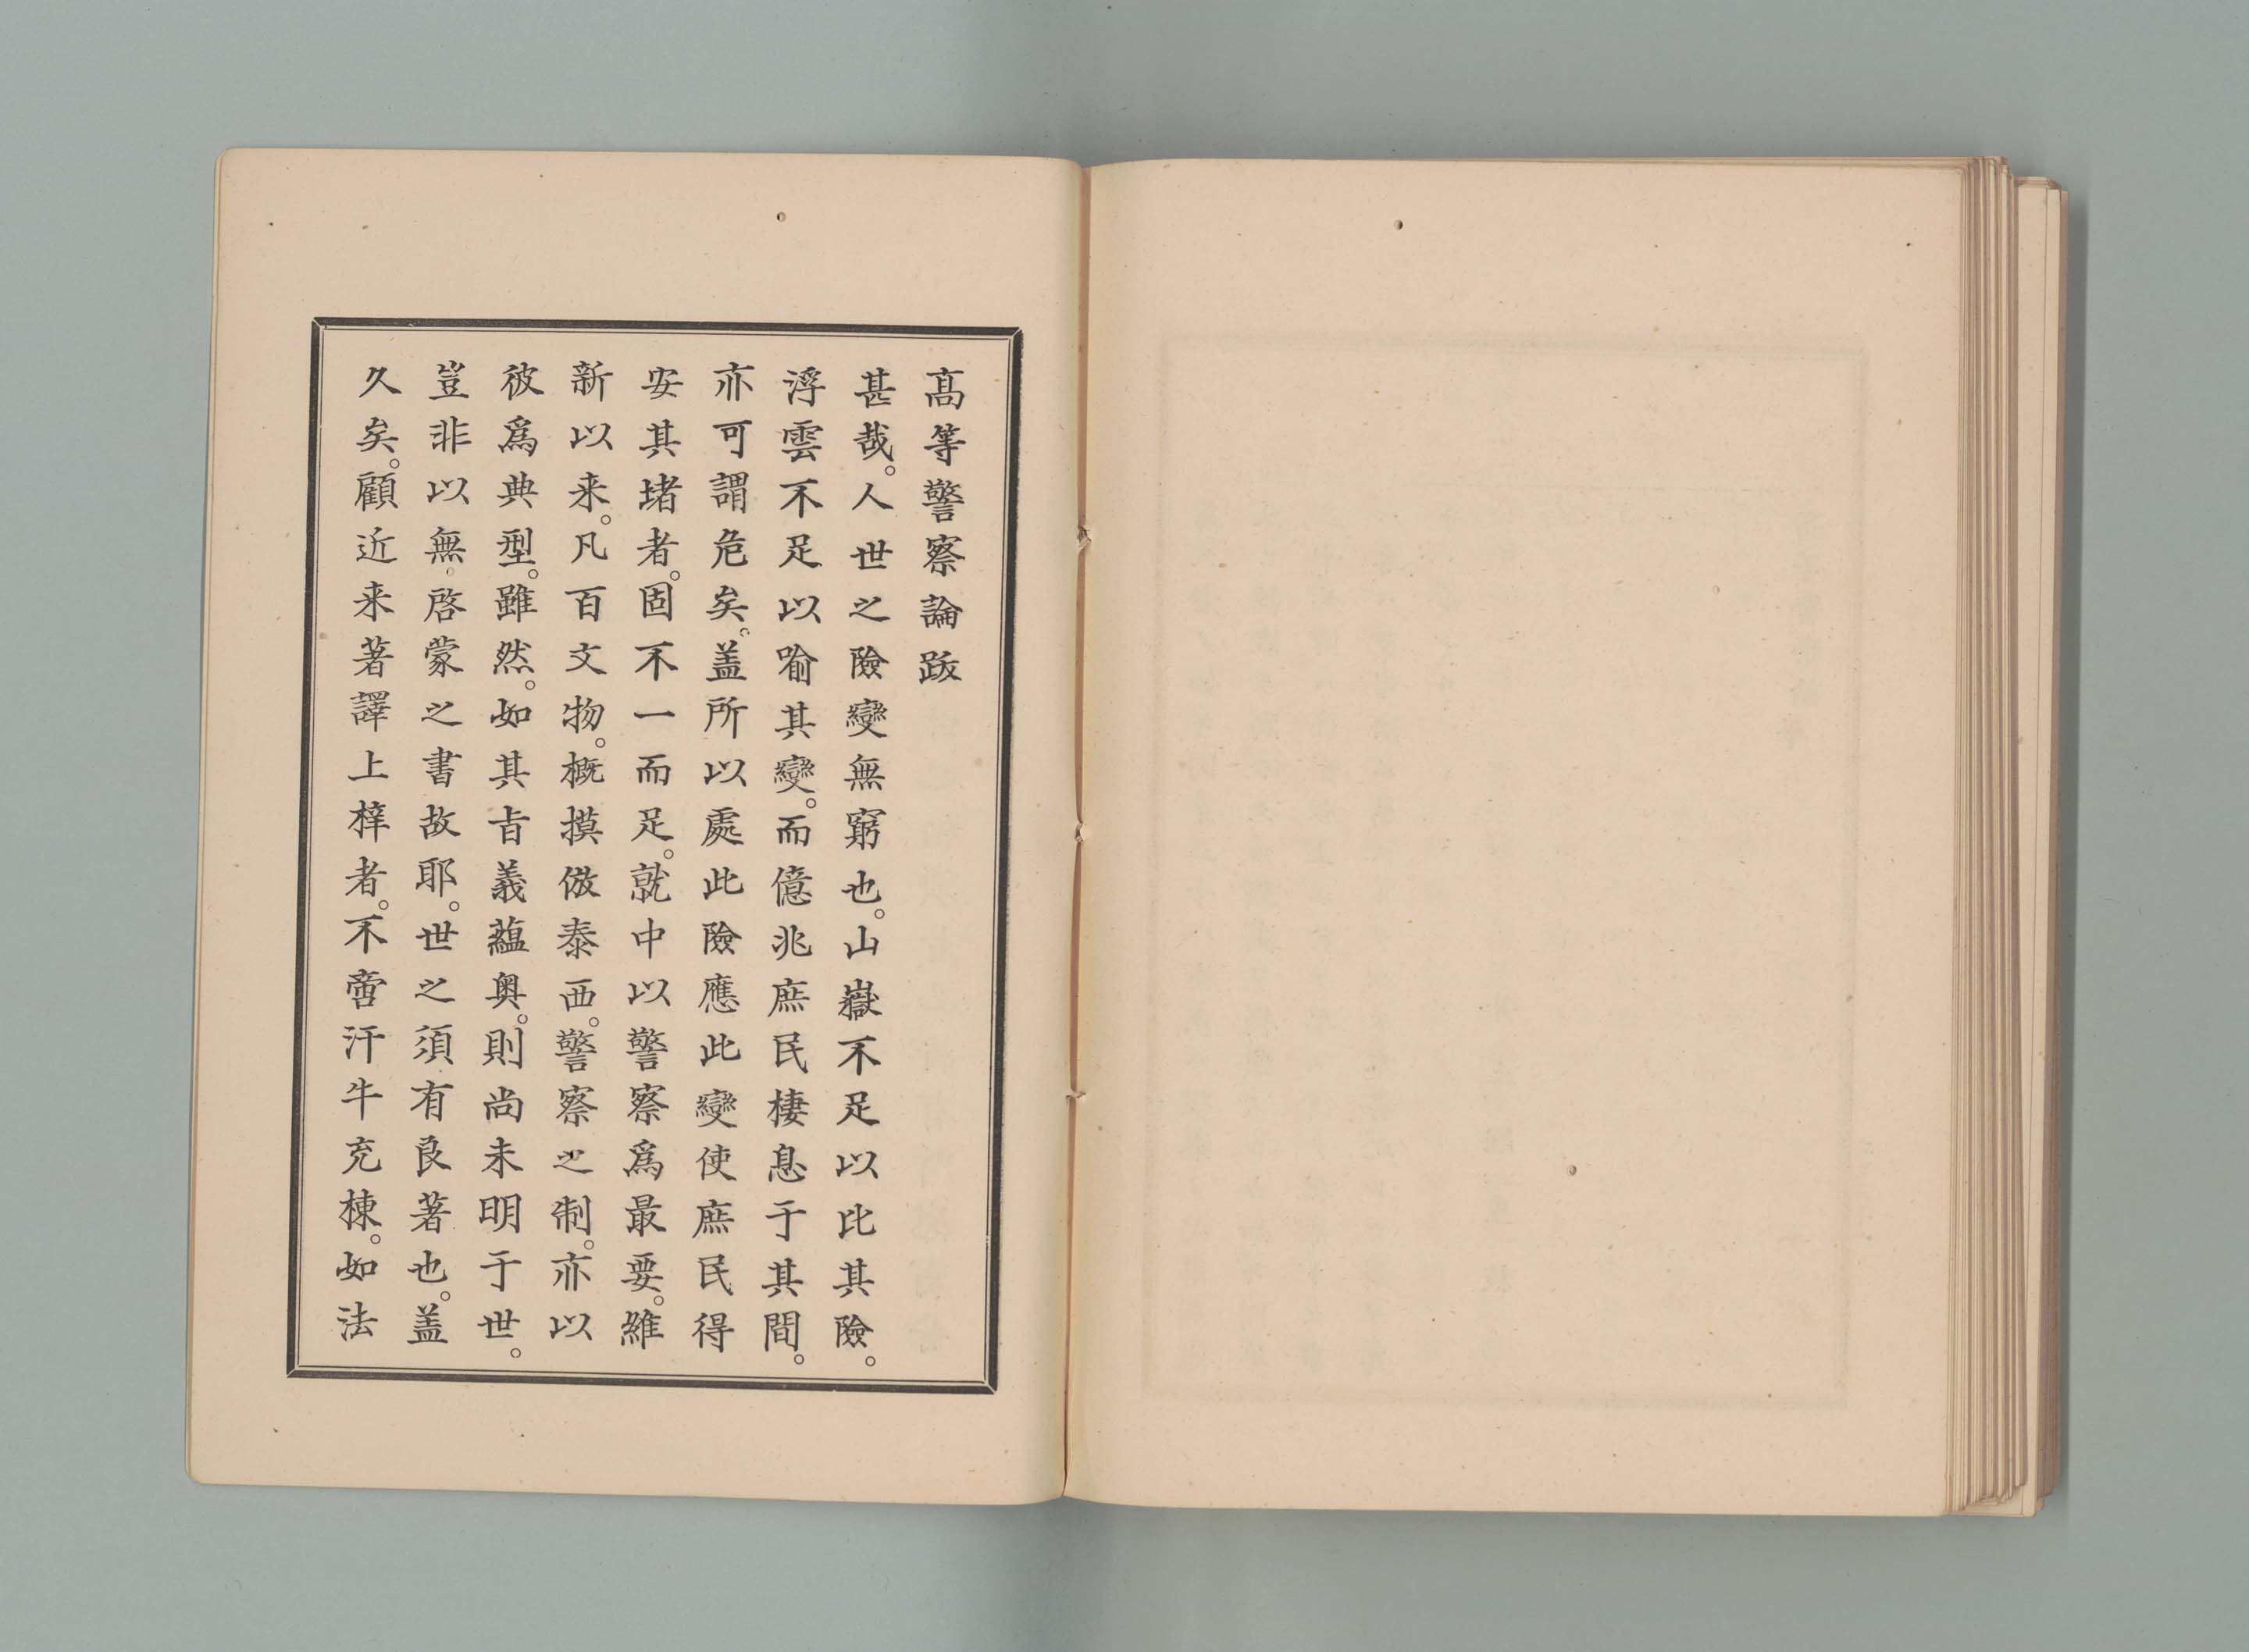 髙等警察論䟦
甚哉。人世之險變無窮也。山嶽不足以比其險。
浮雲不足以喻其變。而億兆庶民棲息于其間。
亦可謂危矣。盖所以處此險應此變使庶民得
安其堵者。固不一而足。就中以警察爲最要。維
新以来。凡百文物。概摸倣泰西。警察之制。亦以
彼爲典型。雖然。如其㫖義蘊奥。則尚未明于世。
豈非以無啓蒙之書故耶。世之須有良著也。盖
久矣。顧近来著譯上梓者。不啻汗牛充棟。如法